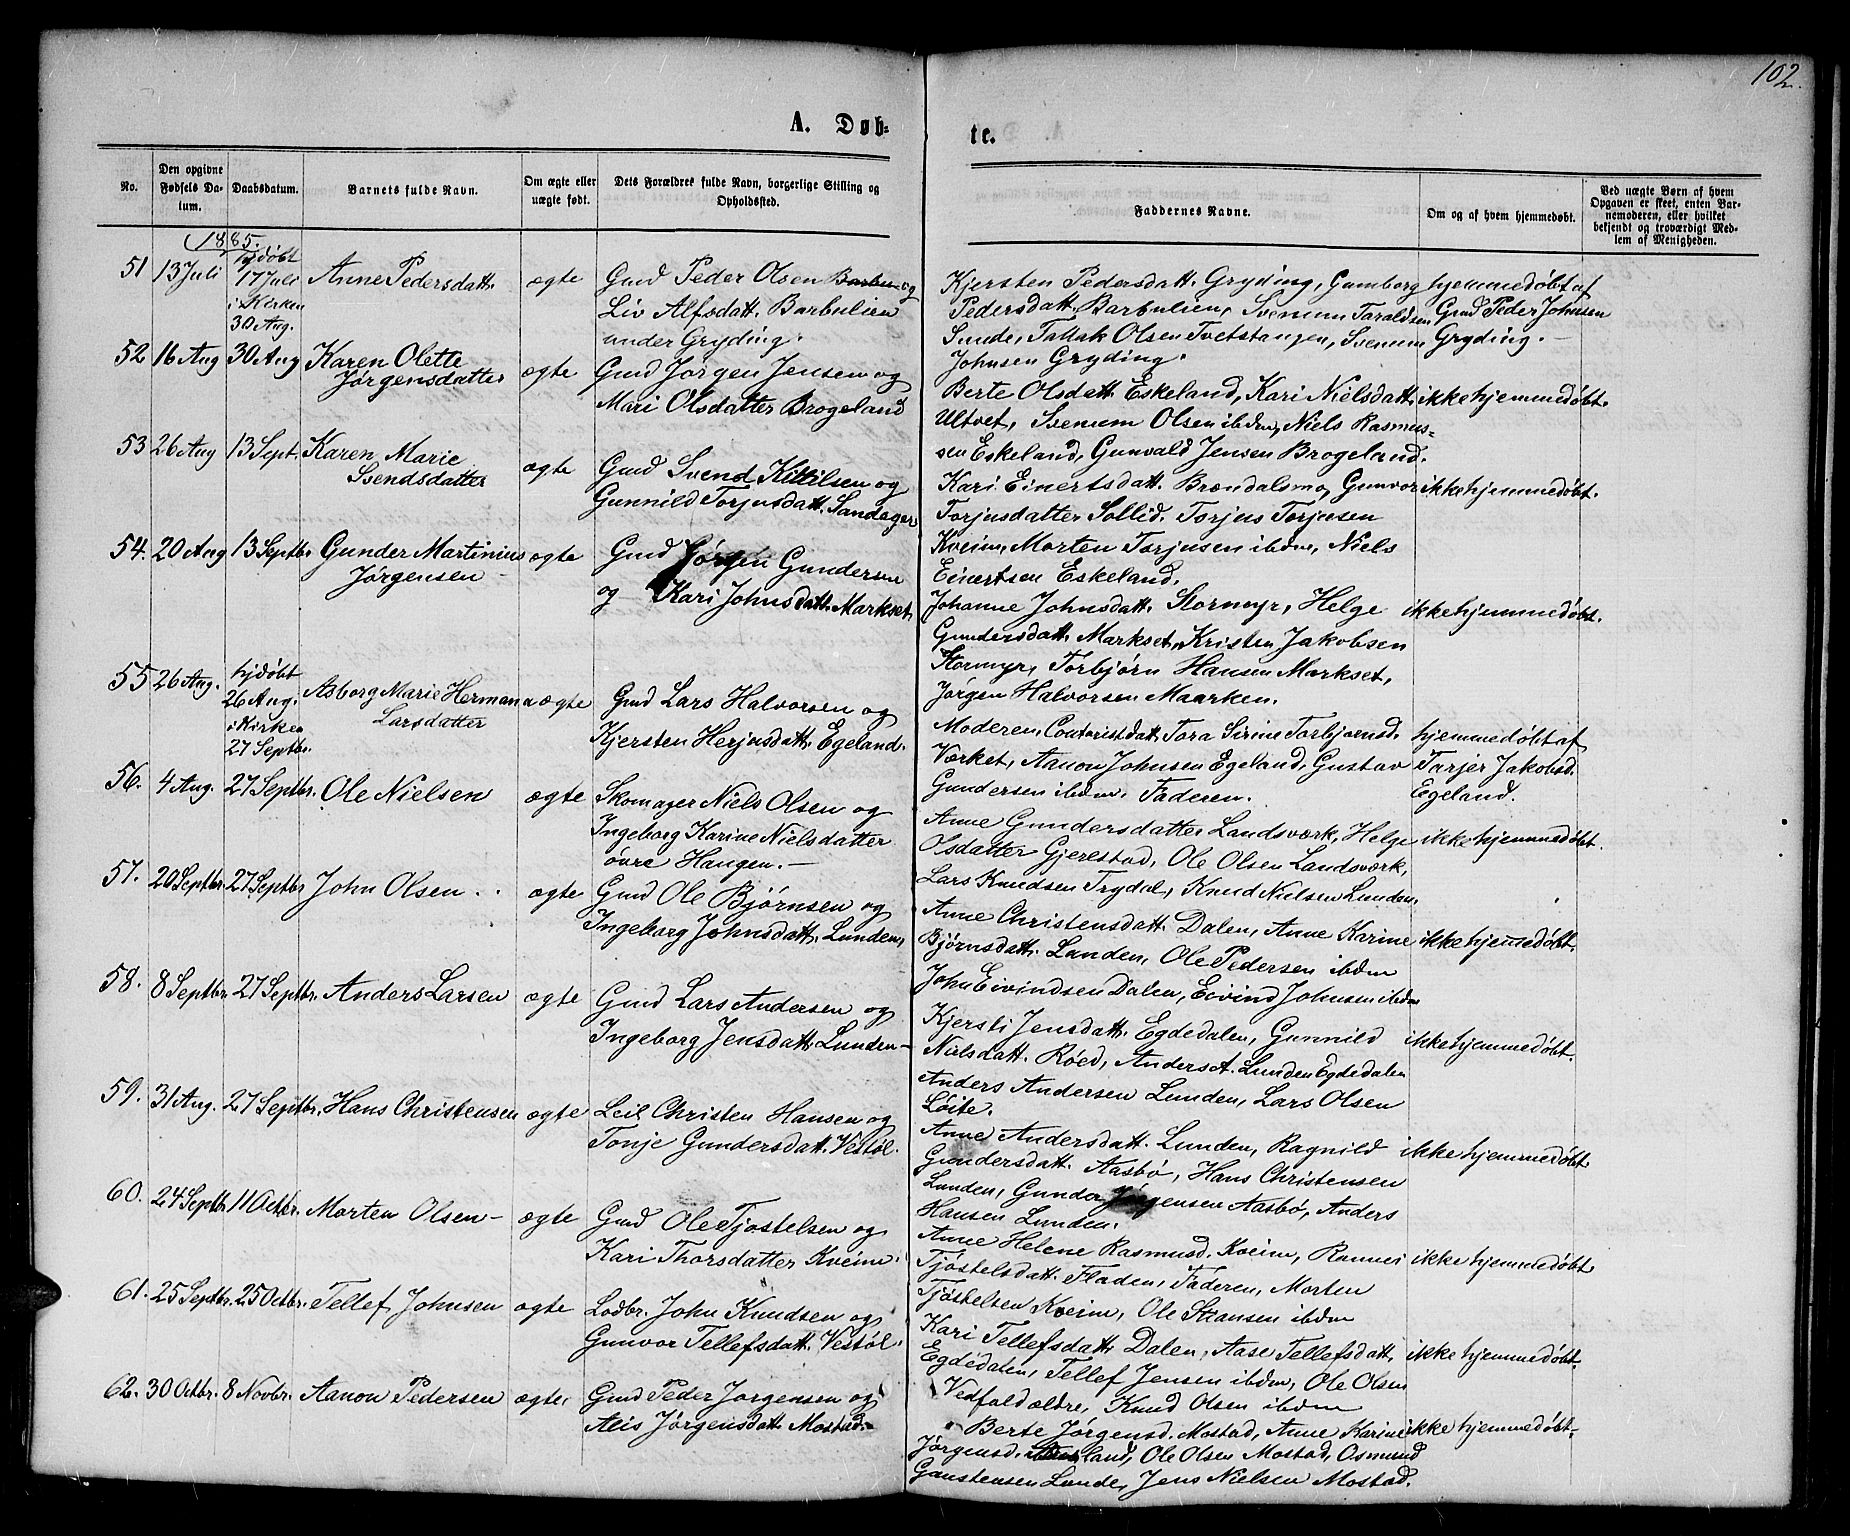 102.
A. Døb-
te.
No.
Den opgivne
Fødsels Da-
tum.
Daabsdatum.
Barnets fulde Navn.
Om ægte eller
uægte født.
Dets Forældres fulde Navn, borgerlige Stilling og
Opholdssted.
Faddernes Navne.
Om og af hvem hjemmedøbt.
Ved uægte Børn af hvem
Opgaven er skeet, enten Bar-
nemoderen, eller hvilket
bekjendt og troværdigt Med-
lem af Menigheden.
1885.
51
13 Juli
hjdøbt
17 Juli
i Kirken
30 Aug.
Anne Pedersdatt.
ægte
Gmd Peder Olsen og
Liv Alfsdatt. Barbulien
under Gryding.
Kjersten Pedersdatt. Gryding, Gunborg
Pedersdatt. Barbulien, Svenum Taraldsen
Sunde, Tallak Olsen Tvetstangen, Svenum
Johnsen Gryding.
hjemmedøbt af
Gmd Peder Johnsen
Gryding.
52
16 Aug
30 Aug
Karen Olette
Jørgensdatter
ægte
Gmd Jørgen Jensen og
Mari Olsdatter Brogeland
Berte Olsdatt. Eskeland, Kari Nielsdatt.
Ultvet, Svenum Olsen ibdm, Niels Rasmus-
sen Eskeland, Gunvald Jensen Brogeland.
ikke hjemmedøbt.
53
26 Aug
13 Sept.
Karen Marie
Svendsdatter
ægte
Gmd Svend Kittilsen og
Gunnild Torjusdatt. Sandager
Kari Einertsdatt. Brændalsmo, Gunvor
Torjusdatter Sollid. Torjus Torjusen
Kveim, Morten Torjusen ibdm, Niels
Einertsen Eskeland.
ikke hjemmedøbt.
54.
20 Aug
13 Septbr
Gunder Martinius
Jørgensen
ægte
Gmd Jørgen Gundersen
og Kari Johnsdatt. Markset
Johanne Johnsdatt. Stormyr, Helge
Gundersdatt. Markset, Kristen Jakobsen
Stormyr, Torbjørn Hansen Markset,
Jørgen Halvorsen Maarken.
ikke hjemmedøbt.
55
26 Aug.
hjdøbt
26 Aug.
i Kirken
27 Septbr.
Asborg Marie Hermana
Larsdatter
ægte
Gmd Lars Halvorsen og
Kjersten Herjusdatt. Egeland.
Moderen, Contoristdatt. Tora Sirine Torbjørnsd.
Værket, Aanon Johnsen Egeland, Gustav
Gundersen ibdm. Faderen.
hjemmedøbt af
Tarjer Jakobsd.
Egeland.
56.
4 Aug.
27 Septbr.
Ole Nielsen
ægte
Skomager Niels Olsen og
Ingeborg Karine Nielsdatter
øvre Haugen.
Anne Gundersdatter Landsværk, Helge
Olsdatter Gjerestad, Ole Olsen Landsværk,
Lars Knudsen Trydal, Knud Nielsen Lunden.
ikke hjemmedøbt.
57.
20 Septbr
27 Septbr
John Olsen
ægte
Gmd Ole Bjørnsen og
Ingeborg Johnsdatt. Lunden,
Anne Christensdatt. Dalen, Anne Karine
Bjørnsdatt. Lunden, Ole Pedersen ibdm
John Eivindsen Dalen, Eivind Johnsen ibdm
ikke hjemedøbt.
58.
8 Septbr
27 Septbr.
Anders Larsen
ægte
Gmd Lars Andersen og
Ingeborg Jensdatt. Lunden
Kjersti Jensdatt. Egdedalen, Gunnild
Nielsdatt. Røed, Anders A. Lunden Egdedalen
Anders Andersen Lunden, Lars Olsen
Løite.
ikke hjemmedøbt.
59.
31 Aug.
27 Septbr.
Hans Christensen
ægte
Leil Christen Hansen og
Tonje Gundersdatt. Vestøl.
Anne Andersdatt. Lunden, Ragnild
Gundersdatt. Aasbø, Hans Christensen
Lunden, Gunder Jørgensen Aasbø, Anders
Hansen Lunden.
ikke hjemmedøbt
60.
24 Septbr
11 Octbr.
Morten Olsen
ægte
Gmd Ole Tjøstelsen og
Kari Thorsdatter Kveim.
Anne Helene Rasmusd. Kveim, Rannei
Tjøstelsdatt. Fladen, Faderen, Morten
Tjøstelsen Kveim, Ole ibdm
ikke hjemmedøbt
61.
25 Septbr.
25 Octbr.
Tellef Johnsen
ægte
Lodbr. John Knudsen og
Gunvor Tellefsdatt. Vestøl.
Kari Tellefsdatt. Dalen, Aase Tellefsdatt.
Egdedalen, Tellef Jensen ibdm, Ole Olsen
Vedfald ældre, Knud Olsen ibdm
ikke hjemmedøbt.
62.
30 Octbr.
8 Novbr.
Aanon Pedersen
ægte.
Gmd Peder Jørgensen og
Alis Jørgensdatt. Mostad.
Berte Jørgensd. Mostad, Anne Karine
Jørgensd. Ole Olsen Mostad, Osmund
Gaustensen Lunde, Jens Nielsen Mostad.
ikke hjemmedøbt.